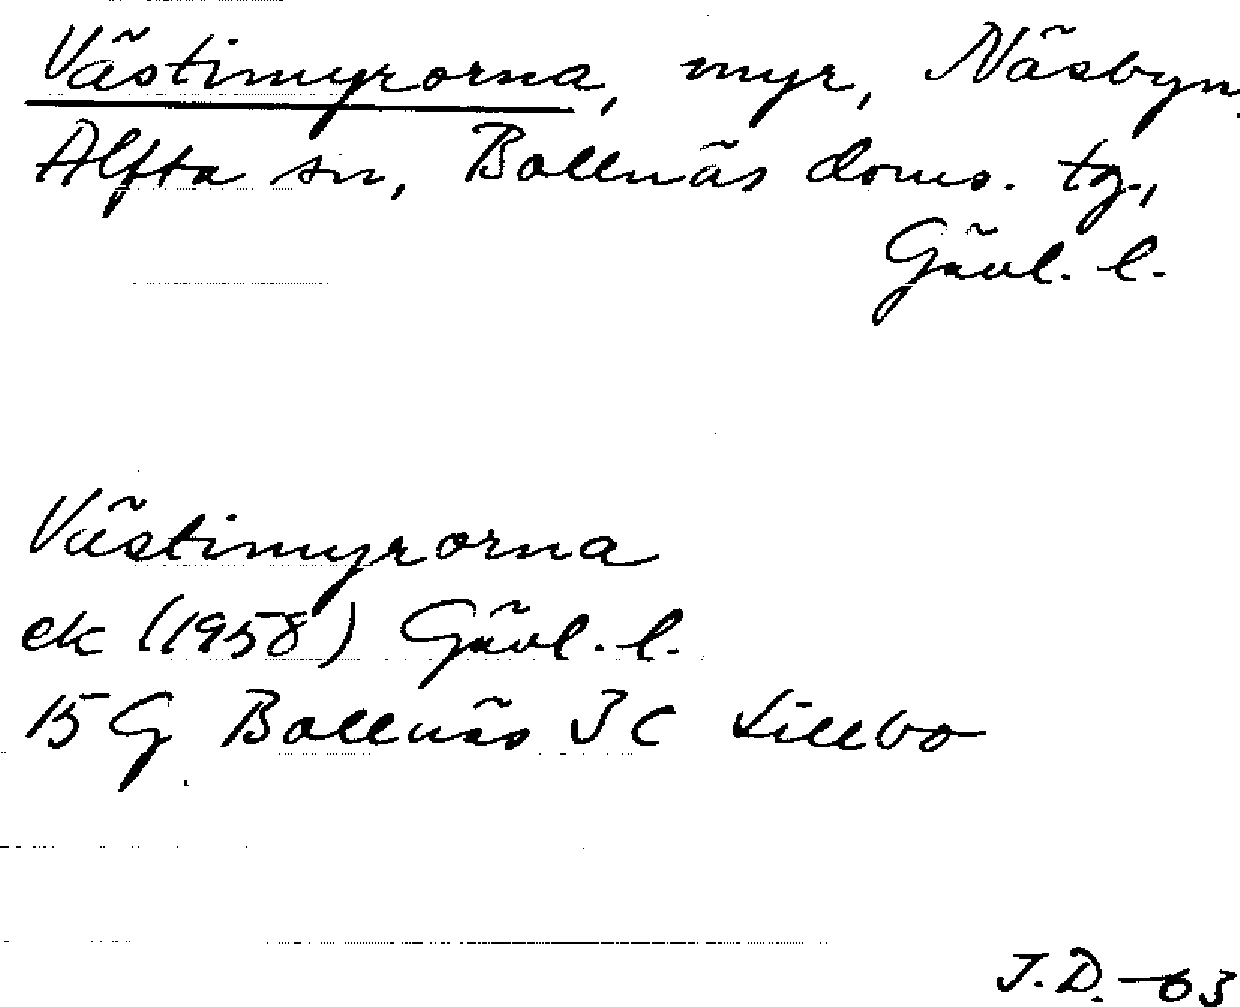 Västimyrorna, myr, Näsbyn,
Alfta sn, Bollnäs doms. tg.,
Gävl. l.
Västimyrorna
ek (1958) Gävl. l.
15G Bollnäs 3C Lillbo
J.D.-63